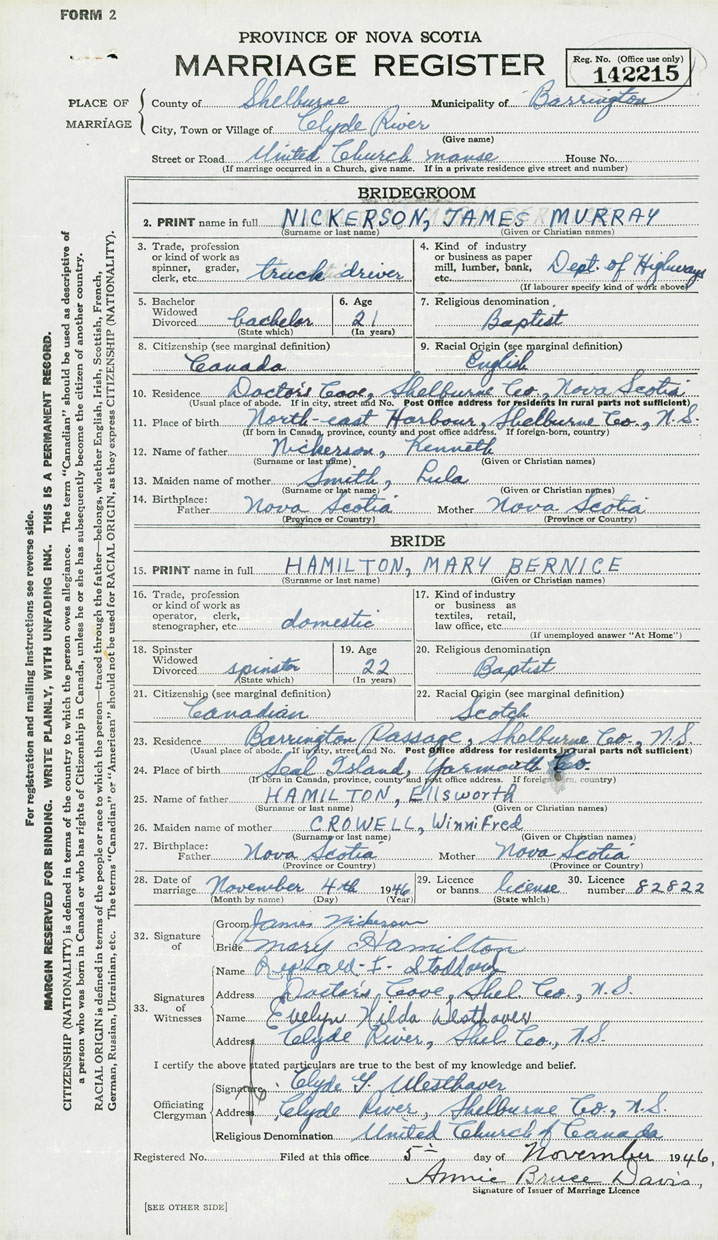 FORM 2
PROVINCE OF NOVA SCOTIA
MARRIAGE REGISTER
Reg. No. (Office use only)
142215
PLACE OF MARRIAGE
County of Shelburne Municipality of Barrington
City, Town or Village of Clyde River
(Give name)
Street or Road United Church manse House No.
(If marriage occurred in a Church, give name. If in a private residence give street and number)
BRIDEGROOM
2. PRINT name in full NICKERSON, JAMES MURRAY
(Surname or last name) (Given or Christian names)
3. Trade, profession or kind of work as spinner, grader, clerk, etc. truck driver
4. Kind of industry or business as paper mill, lumber, bank, etc. Dept. of Highways
(If labourer specify kind of work above)
5. Bachelor Widowed Divorced bachelor
(State which)
6. Age 21
(In years)
7. Religious denomination
Baptist
8. Citizenship (see marginal definition)
Canada
9. Racial Origin (see marginal definition)
English
10. Residence Doctor's Cove, Shelburne Co., Nova Scotia
(Usual place of abode. If in city, street and No. Post Office address for residents in rural parts not sufficient)
11. Place of birth North-east Harbour, Shelburne Co., N.S.
(If born in Canada, province, county and post office address. If foreign-born, country)
12. Name of father Nickerson, Kenneth
(Surname or last name) (Given or Christian names)
13. Maiden name of mother Smith, Lula
(Surname or last name) (Given or Christian names)
14. Birthplace: Father Nova Scotia Mother Nova Scotia
(Province or Country) (Province or Country)
BRIDE
15. PRINT name in full HAMILTON, MARY BERNICE
(Surname or last name) (Given or Christian names)
16. Trade, profession or kind of work as operator, clerk, stenographer, etc. domestic
17. Kind of industry or business as textiles, retail, law office, etc.
(If unemployed answer "At Home")
18. Spinster Widowed Divorced spinster
(State which)
19. Age 22
(In years)
20. Religious denomination
Baptist
21. Citizenship (see marginal definition)
Canadian
22. Racial Origin (see marginal definition)
Scotch
23. Residence Barrington Passage, Shelburne Co., N.S.
(Usual place of abode. If in city, street and No. Post Office address for residents in rural parts not sufficient)
24. Place of birth Seal Island, Yarmouth Co.
(If born in Canada, province, county and post office address. If foreign-born, country)
25. Name of father HAMILTON, Ellsworth
(Surname or last name) (Given or Christian names)
26. Maiden name of mother CROWELL, Winnifred
(Surname or last name) (Given or Christian names)
27. Birthplace: Father Nova Scotia Mother Nova Scotia
(Province or Country) (Province or Country)
28. Date of marriage November 4th 1946
(Month by name) (Day) (Year)
29. Licence or banns license
(State which)
30. Licence number 82822
32. Signature of
Groom James Nickerson
Bride Mary Hamilton
33. Signatures of Witnesses
Name F.
Address Doctor's Cove, Shel. Co., N.S.
Name Evelyn Hilda Westhaver
Address Clyde River, Shel. Co., N.S.
I certify the above stated particulars are true to the best of my knowledge and belief.
Officiating Clergyman
Signature Clyde G. Westhaver
Address Clyde River, Shelburne Co., N.S.
Religious Denomination United Church of Canada
Registered No. Filed at this office 5th day of November 1946,
Annie Bruce Davis,
Signature of Issuer of Marriage Licence
[SEE OTHER SIDE]
For registration and mailing instructions see reverse side.
MARGIN RESERVED FOR BINDING. WRITE PLAINLY, WITH UNFADING INK. THIS IS A PERMANENT RECORD.
CITIZENSHIP (NATIONALITY) is defined in terms of the country to which the person owes allegiance. The term "Canadian" should be used as descriptive of
a person who was born in Canada or who has rights of Citizenship in Canada, unless he or she has subsequently become the citizen of another country.
RACIAL ORIGIN is defined in terms of the people or race to which the person—traced through the father—belongs, whether English, Irish, Scottish, French,
German, Russian, Ukrainian, etc. The terms "Canadian" or "American" should not be used for RACIAL ORIGIN, as they express CITIZENSHIP (NATIONALITY).